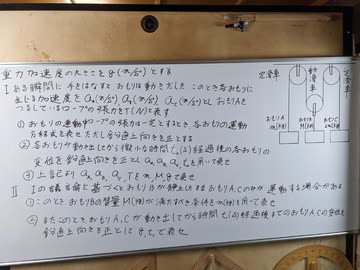 重力加速度の大きさを g(m/s²)とする
I ある瞬間に 手をはなすと おもりは動きだした このとき各おもりに
生じる加速度を aA(m/s²) aB(m/s²) aC(m/s²)とし おもりAを
つるしているロープの張力をT(N)と表す
① おもりの運動中ロープの張力は一定とするとき、各おもりの運動
方程式を表せ ただし鉛直上向きを正とする
② 各おもりが動き出してから微小時間t₁(s)経過後の各おもりの
変位を鉛直上向きを正とし aA aB aC t₁を用いて表せ
③ 上記より aA, aB, aC, Tを m, M, gで表せ
II Iの議論に基づくと おもりBが静止したまま おもりA,Cのみが運動する場合がある
①:このとき おもりBの質量M(kg)が満たすべき条件をm(kg)を用いて表せ
② またこのとき おもりA,Cが動き出してから時間t₂(s)経過後までのおもりA,Cの変位を
鉛直上向きを正として g, t₂で表せ
定滑車
動滑車
定滑車
おもりA
m(kg)
おもりB
M(kg)
おもりC
m(kg)